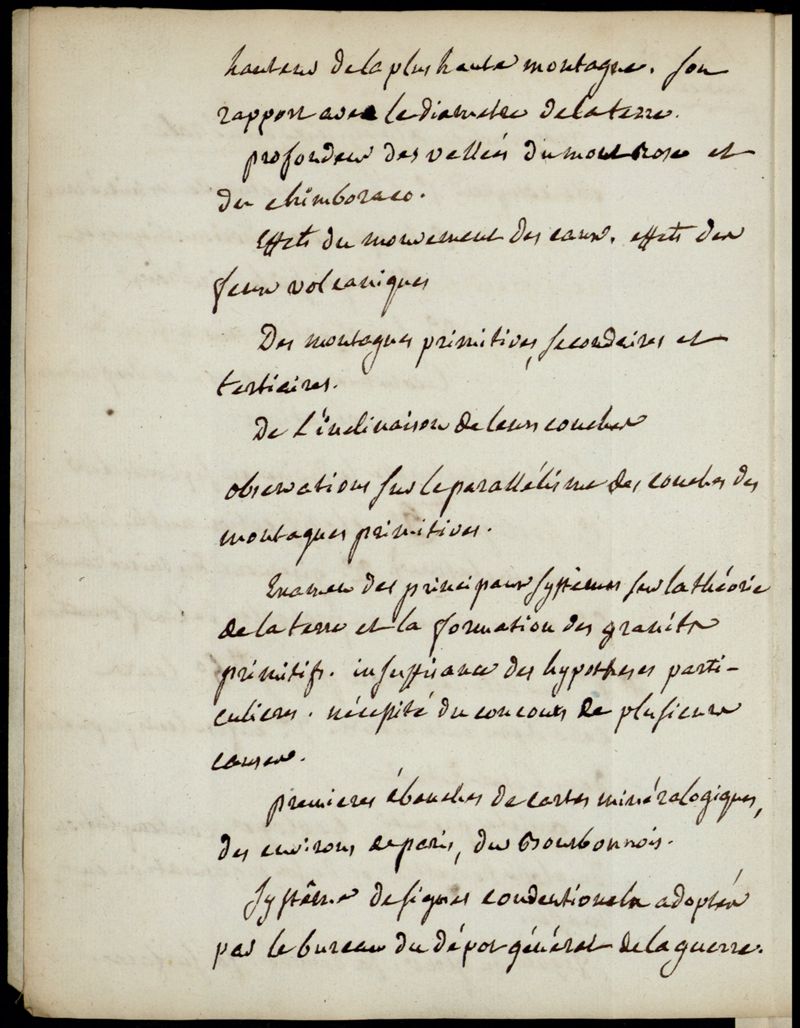 hauteur de la plus haute montagne. son
rapport avec le diametre de la terre.
profondeur des vallées du mont Rose et
du chimboraco.
Effets du mouvement des eaux. effets des
feux volcaniques
Des montagnes primitives, secondaires et
tertiaires.
De l'inclinaison de leurs couches
observations sur le parallélisme des couches des
montagnes primitives.
Examen des principaux systêmes sur la théorie
de la terre et la formation des granits
primitifs. insuffisance des hypotheses parti-
culieres. nécessité du concours de plusieurs
causes.
premieres ébauches de cartes minéralogiques,
des environs de paris, du Bourbonnois.
Systême de signes conventionels adoptés
par le bureau du dépot général de la guerre.